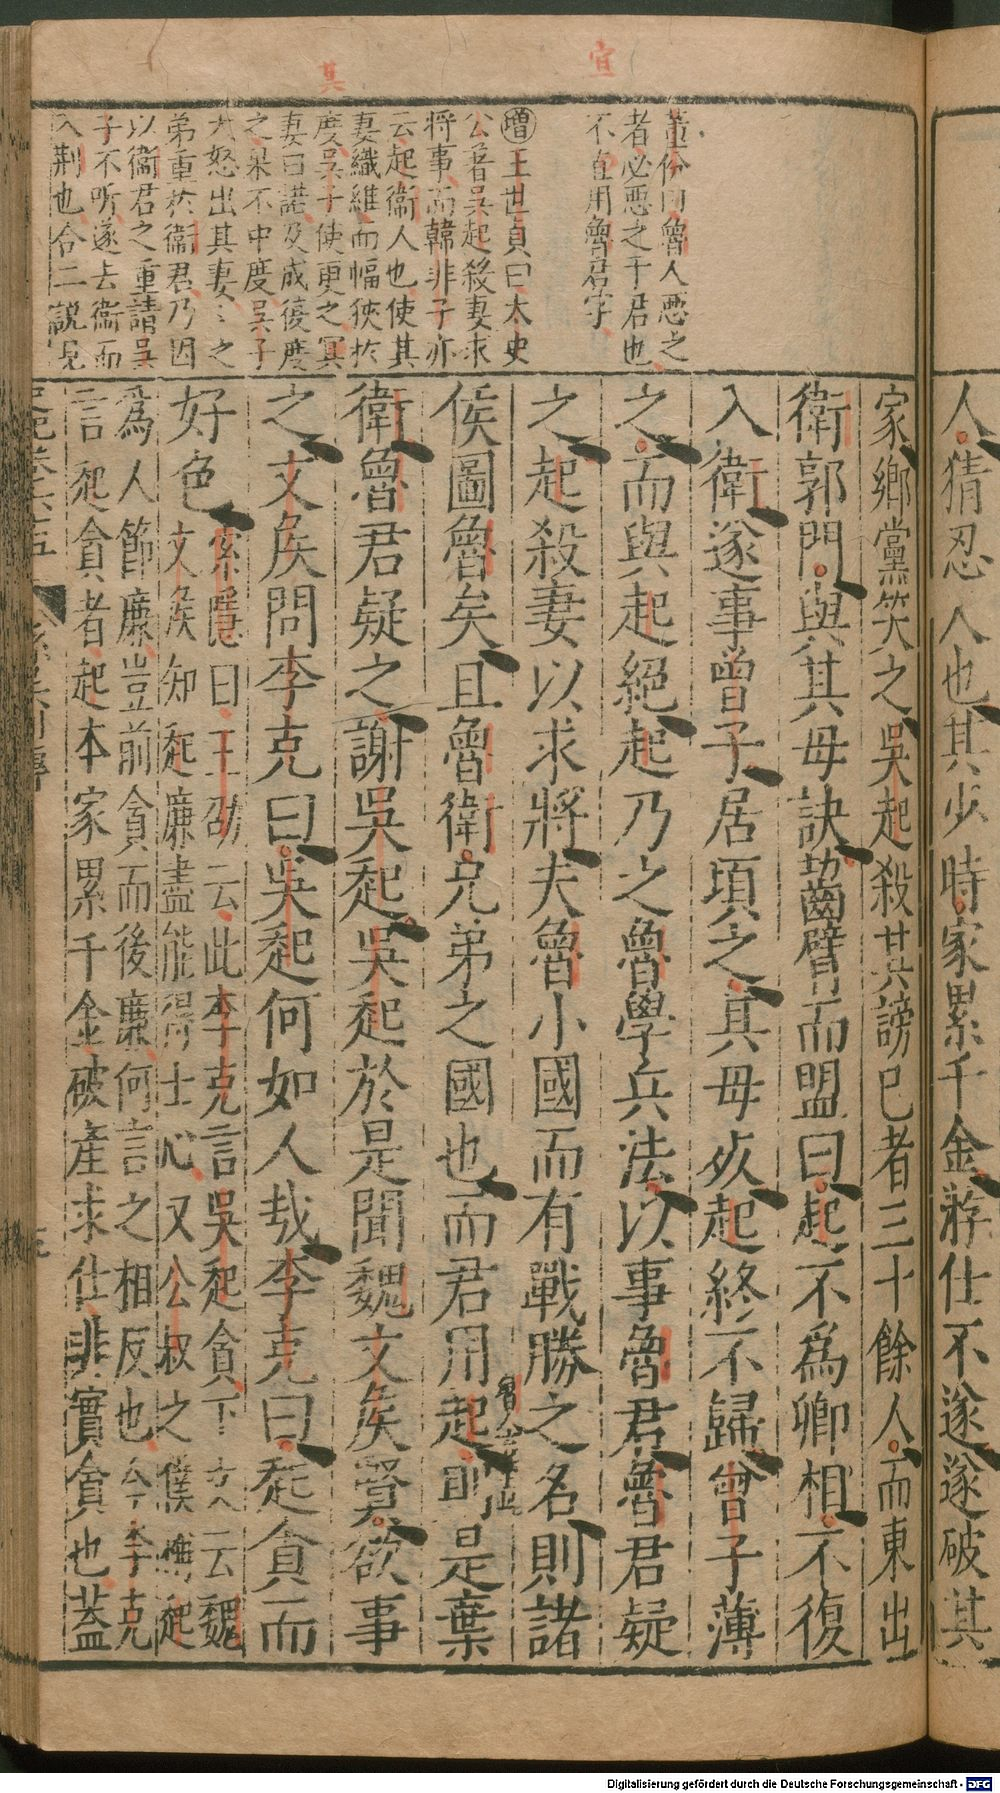 宜
其
董份曰魯人惡之
者必惡之于君也
不宜用魯君字
增王世貞曰太史
公著吳起殺妻求
將事而韓非子亦
云起衞人也使其
妻織維而幅狹於
度吳子使更之
妻曰諾及成復度
之果不中度吳子
大怒出其妻妻之
弟重於衞君乃因
以衞君之重請吳
子不听遂去衞而
入荆也合二說見
人猜忍人也其少時家累千金游仕不遂遂破其
家鄉黨笑之吳起殺其謗已者三十餘人而東出
衛郭門與其母訣齧臂而盟曰起不爲卿相不復
入衛遂事曾子居頃之其母死起終不歸曾子薄
之而與起絕起乃之魯學兵法以事魯君魯君疑
之起殺妻以求將夫魯小國而有戰勝之名則諸
侯圖魯矣且魯衛兄弟之國也而君用起則是棄
衛魯君疑之謝吳起吳起於是聞魏文侯賢欲事
之文侯問李克曰吳起何如人哉李克曰起貪而
好色索隱曰王劭云此李克言吳起貪下文云魏
文侯知起廉盡能得士心又公叔之僕稱起
爲人節廉豈前貪而後廉何言之相反也今李克
言起貪者起本家累千金破產求仕非實貪也蓋
Digitalisierung gefördert durch die Deutsche Forschungsgemeinschaft - DFG